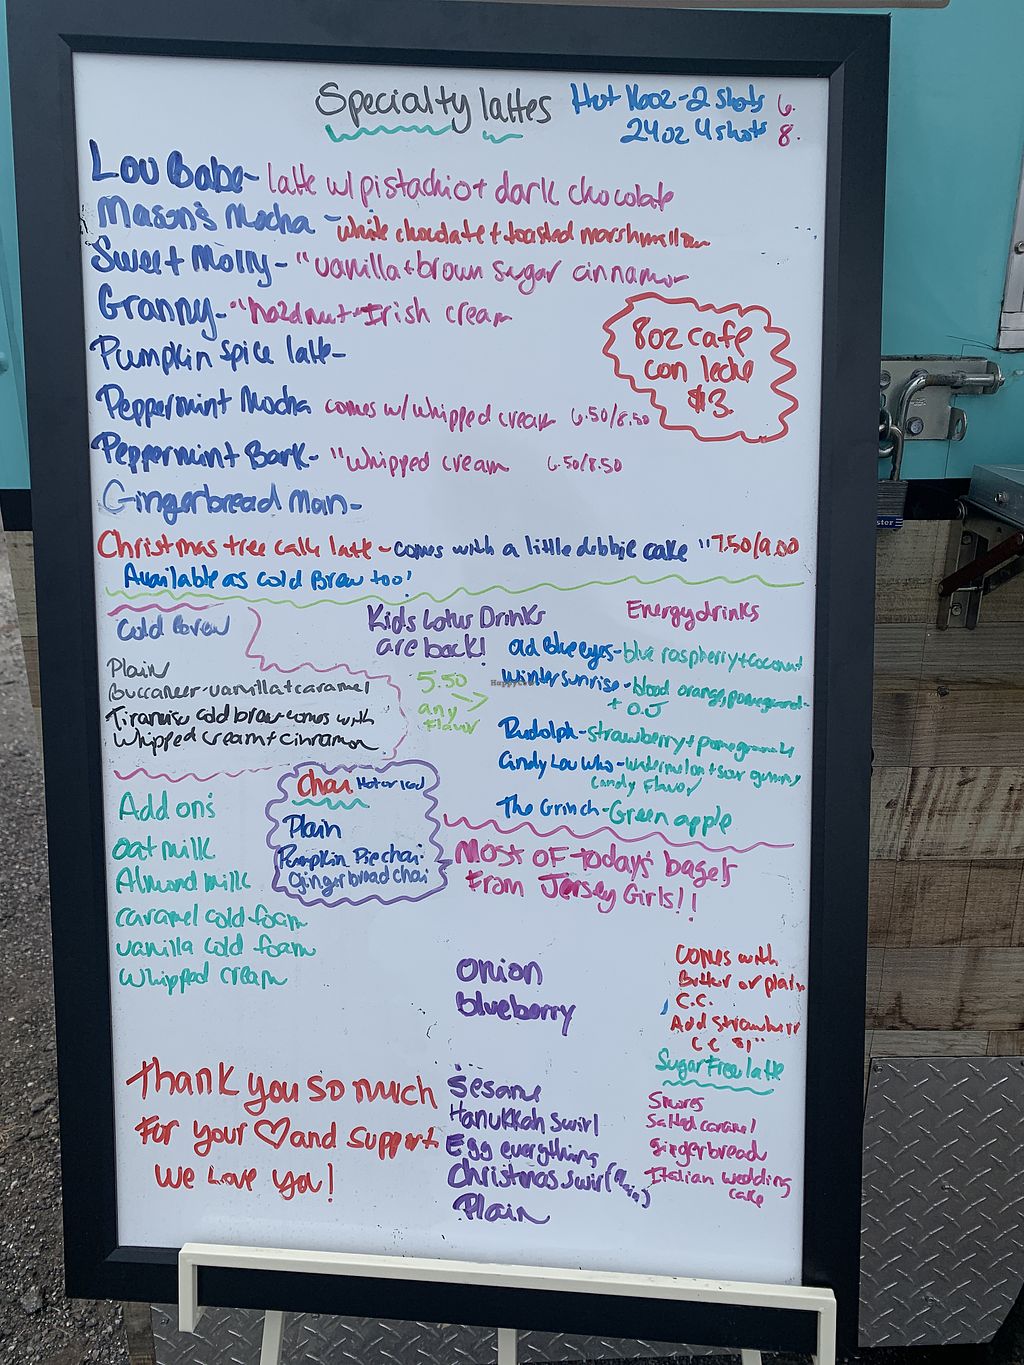 Specialty lattes
Hot 16oz - 2 shots 6.
24oz 4 shots 8.
Lou Babe - latte w/ pistachio + dark chocolate
Mason's Mocha - white chocolate + toasted marshmallow
Sweet Molly - "vanilla + brown sugar cinnamon
Granny - "hazelnut + Irish cream
Pumpkin spice latte -
Peppermint Mocha comes w/ whipped cream 6.50/8.50
Peppermint Bark - "whipped cream 6.50/8.50
Gingerbread Man -
Christmas tree cake latte - comes with a little debbie cake "7.50/9.00
Available as cold Brew too!
8oz cafe
con leche
$3.
Cold Brew
Plain
Buccaneer - vanilla + caramel
Tiramisu cold brew comes with
whipped cream + cinnamon
Kids Lotus Drinks
are back!
5.50
any
Flavor
Energy drinks
Old Blue eyes - blue raspberry + coconut
Winter sunrise - blood orange, pomegranate
+ O.J
Rudolph - strawberry + pomegranate
Cindy Lou Who - watermelon + sour gummy
candy Flavor
The Grinch - Green apple
Add ons
oat milk
Almond milk
caramel cold foam
vanilla cold foam
whipped cream
Chai Hot or Iced
Plain
Pumpkin Pie chai
Gingerbread chai
Most OF today's bagels
From Jersey Girls!!
onion
blueberry
Sesame
Hanukkah swirl
Egg everything
Christmas swirl (plain)
Plain
comes with
Butter or plain
C.C.
Add Strawberry
C C $1"
Sugar Free latte
Smores
Salted caramel
gingerbread
Italian wedding
cake
Thank you so much
For your ♡ and support
We Love You!